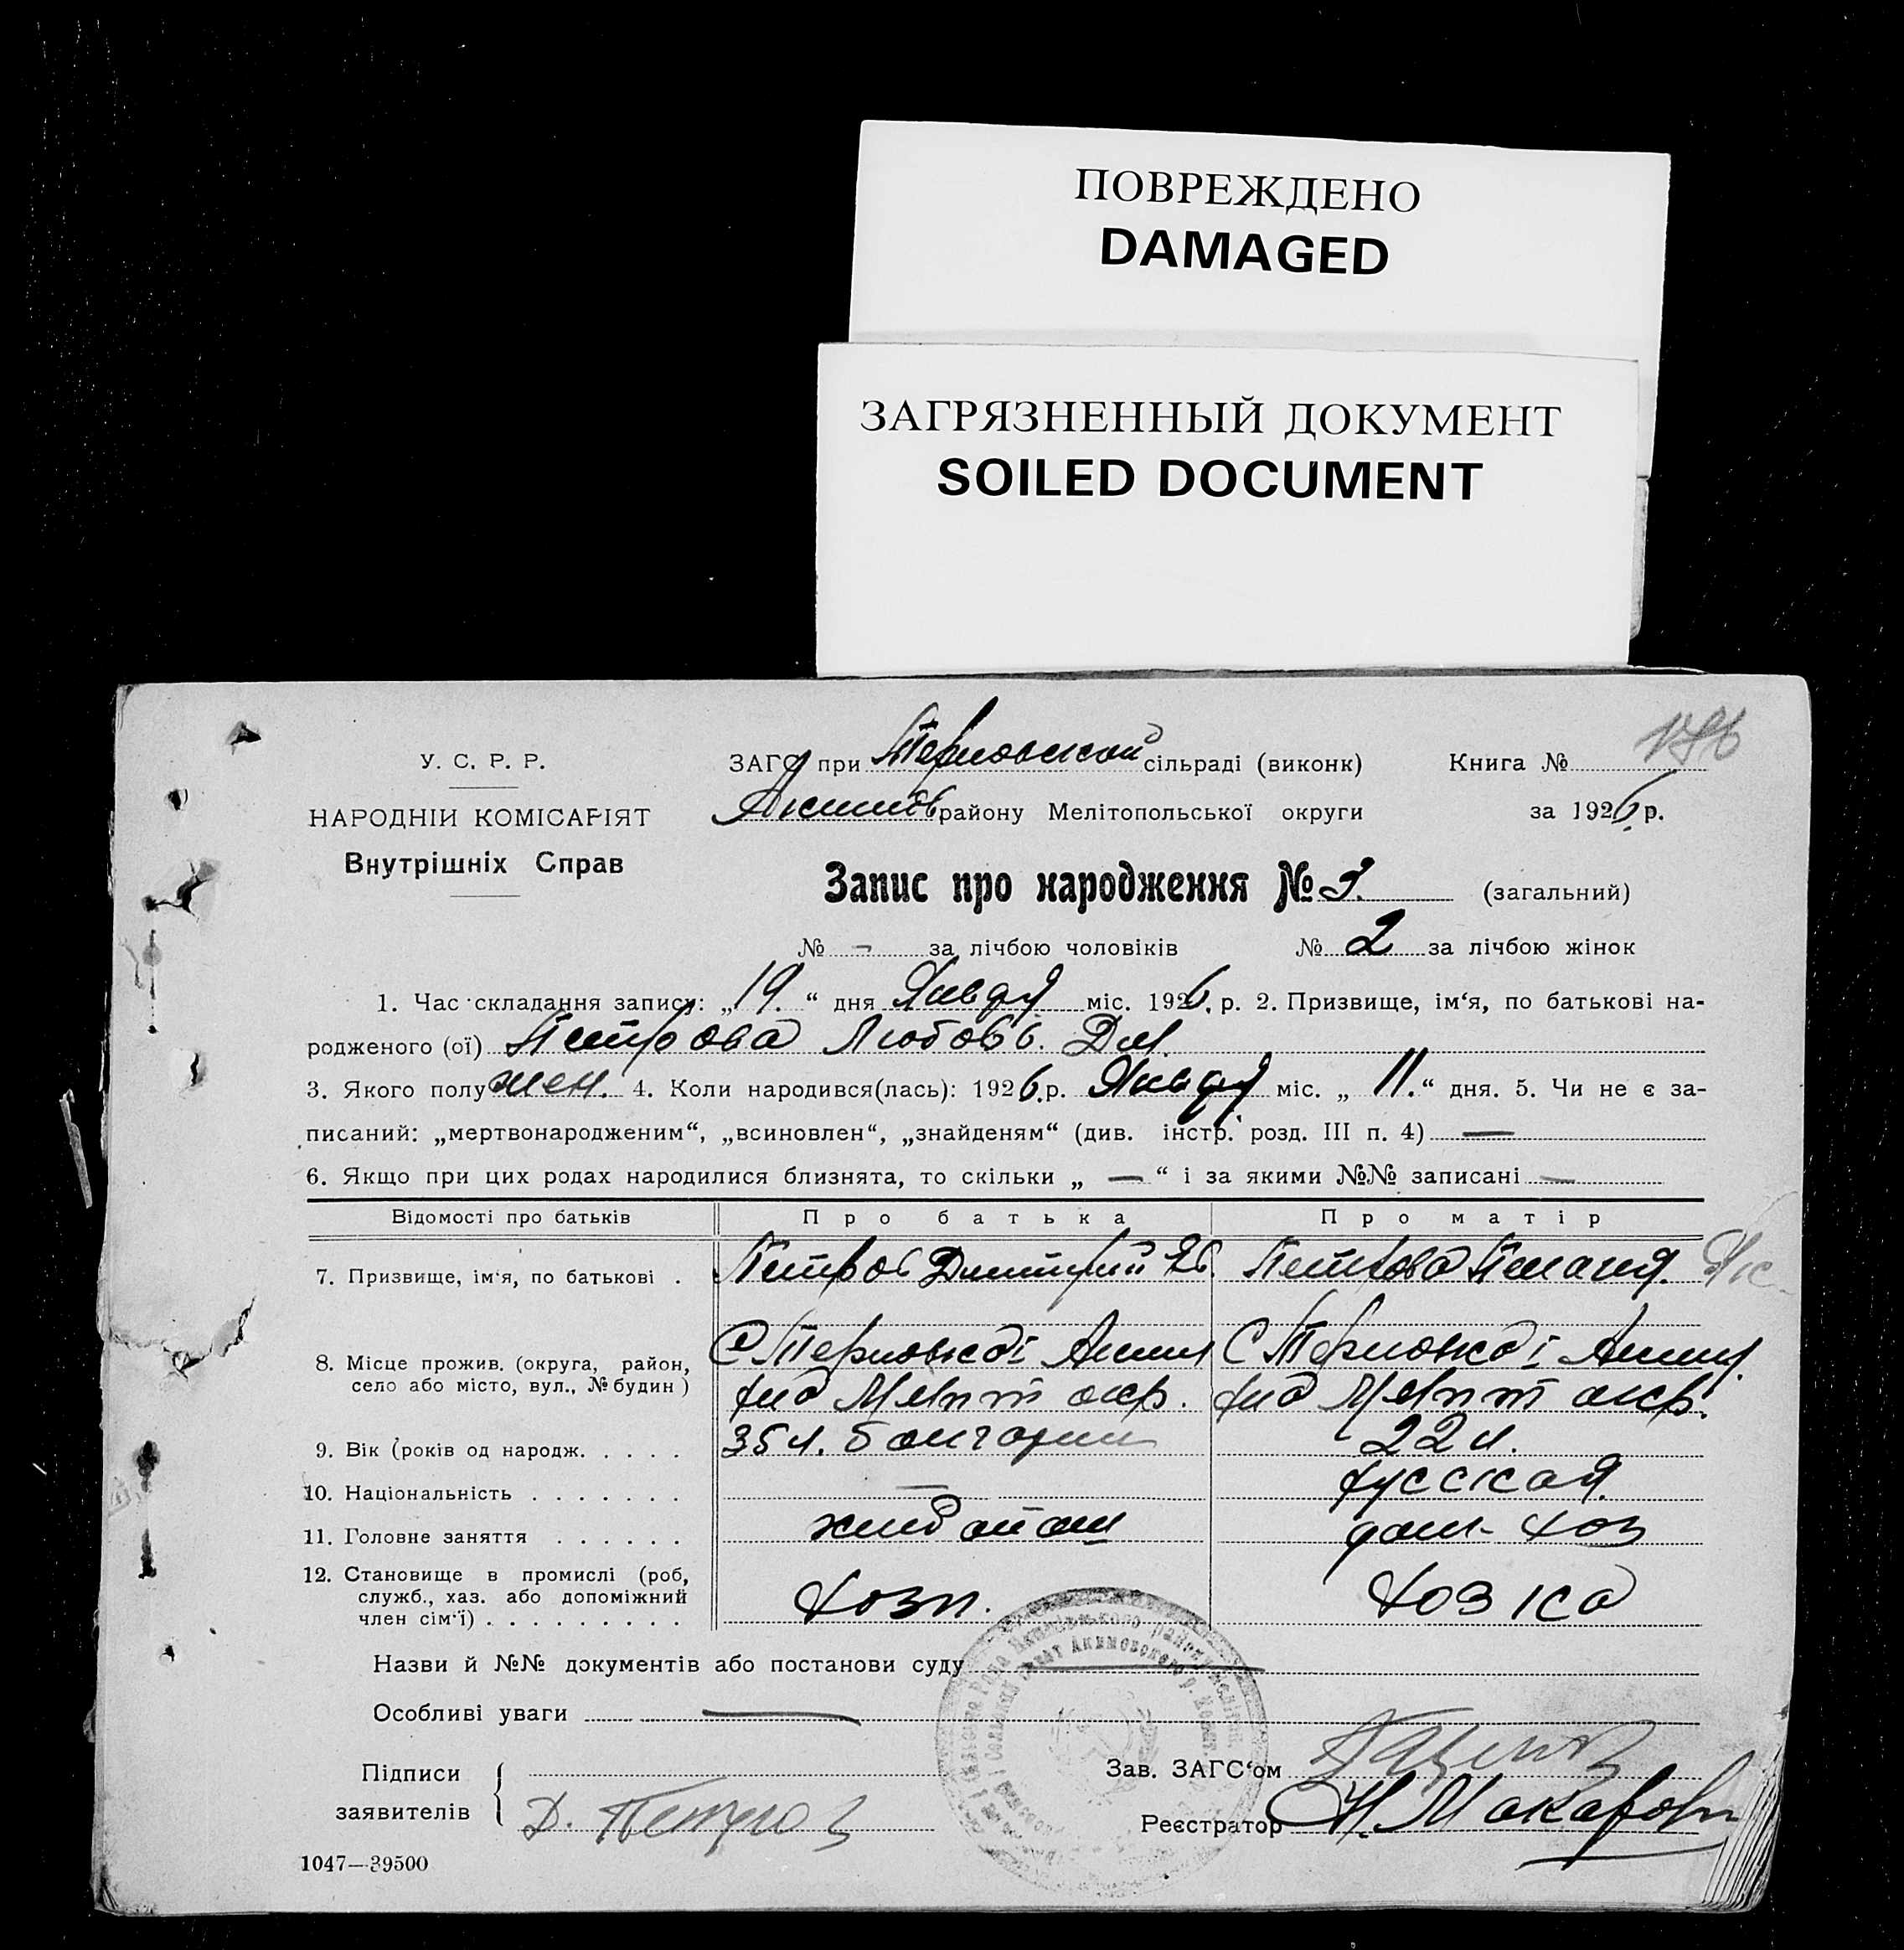 ПОВРЕЖДЕНО
DAMAGED
ЗАГРЯЗНЕННЫЙ ДОКУМЕНТ
SOILED DOCUMENT
У. С. Р. Р.
НАРОДНІЙ КОМІСАРІЯТ
Внутрішніх Справ
ЗАГС при Терновской сільраді (виконк) Книга №
Акимов району Мелітопольської округи за 1926 р.
Запис про народження № 3. (загальний)
№ - за лічбою чоловіків № 2 за лічбою жінок
1. Час складання запису: „19.“ дня Января міс. 1926. р. 2. Призвище, ім‘я, по батькові на-
родженого (ої) Петрова Любовь. Дм.
3. Якого полу жен. 4. Коли народився(лась): 1926.р. Января міс. „ 11.“ дня. 5. Чи не є за-
писаний: „мертвонародженим“, „всиновлен“, „знайденям“ (див. інстр. розд. III п. 4) —
6. Якщо при цих родах народилися близнята, то скільки „ — “ і за якими №№ записані —
Відомості про батьків Про батька Про матір
7. Призвище, ім‘я, по батькові . Петров Дмитрий Яв. Петрова Пелагия. Як
8. Місце прожив. (округа, район, С Терновкаді Аким С Терновкаді Аким.
село або місто, вул., № будин) Меліт окр. Меліт окр.
9. Вік (років од народж. . . . . 35 л. болгарин 22 л.
10. Національність . . . . . . . — русская
11. Головне заняття . . . . . . хлебопаш дом- хоз
12. Становище в промислі (роб,
служб., хаз. або допоміжний
член сім‘ї) . . . . . . . . . хозп. хозка
Назви й №№ документів або постанови суду —
Особливі уваги —
Підписи
заявителів Д. Петров
Зав. ЗАГС‘ом
Реєстратор Н. Макаров
1047—39500